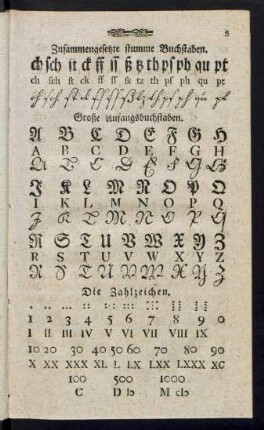 5
Zusammengesetzte stumme Buchstaben.
ch sch st ck ff ss ß tz th pf ph qu pt
ch sch st ck ff ss sz tz th pf ph qu pt
ch sch st ck ff ss ß tz th pf ph qu pt
Große Anfangsbuchstaben.
A B C D E F G H
A B C D E F G H
A B C D E F G H
J K L M N O P Q
I K L M N O P Q
J K L M N O P Q
R S T U V W X Y Z
R S T U V W X Y Z
R S T U V W X Y Z
Die Zahlzeichen.
1 2 3 4 5 6 7 8 9 0
I II III IV V VI VII VIII IX
10 20 30 40 50 60 70 80 90
X XX XXX XL L LX LXX LXXX XC
100 500 1000
C D IↃ M CIↃ